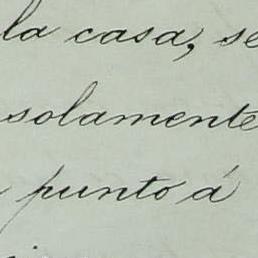 la casa, se
solamente
punto á